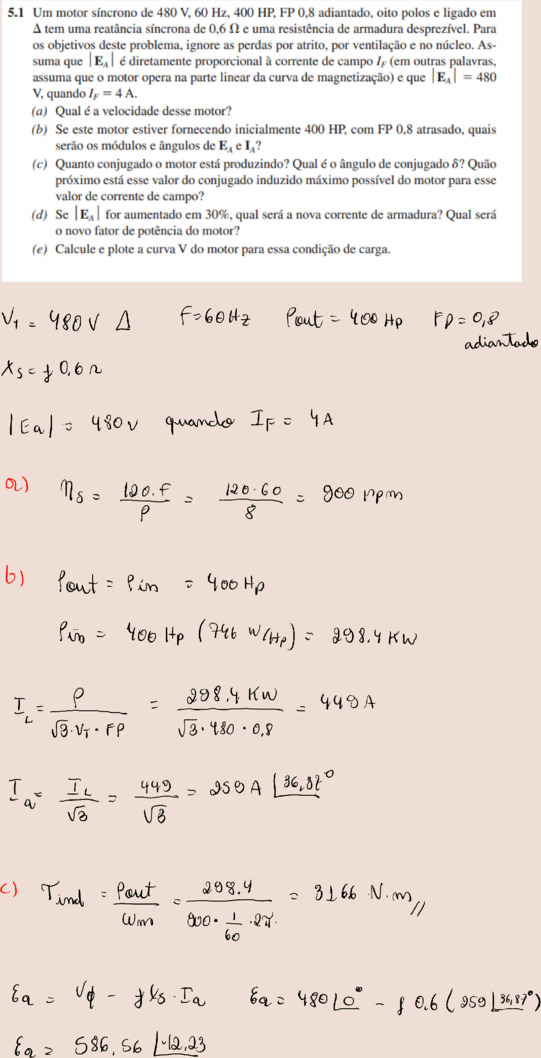 5.1 Um motor síncrono de 480 V, 60 Hz, 400 HP, FP 0,8 adiantado, oito polos e ligado em
Δ tem uma reatância síncrona de 0,6 Ω e uma resistência de armadura desprezível. Para
os objetivos deste problema, ignore as perdas por atrito, por ventilação e no núcleo. As-
suma que |E_A| é diretamente proporcional à corrente de campo I_F (em outras palavras,
assuma que o motor opera na parte linear da curva de magnetização) e que |E_A| = 480
V, quando I_F = 4 A.
(a) Qual é a velocidade desse motor?
(b) Se este motor estiver fornecendo inicialmente 400 HP, com FP 0,8 atrasado, quais
serão os módulos e ângulos de E_A e I_A?
(c) Quanto conjugado o motor está produzindo? Qual é o ângulo de conjugado δ? Quão
próximo está esse valor do conjugado induzido máximo possível do motor para esse
valor de corrente de campo?
(d) Se |E_A| for aumentado em 30%, qual será a nova corrente de armadura? Qual será
o novo fator de potência do motor?
(e) Calcule e plote a curva V do motor para essa condição de carga.
V_T = 480 V Δ F=60Hz Pout = 400 Hp FP = 0,8
adiantado
X_S = j 0,6 Ω
|Ea| = 480V quando I_F = 4A
a) n_S = 120.F / P = 120.60 / 8 = 900 rpm
b) Pout = Pin = 400 Hp
Pin = 400 Hp (746 W/Hp) = 298.4 KW
I_L = P / √3.V_T.FP = 298,4 KW / √3.480.0,8 = 449A
I_a = I_L / √3 = 449 / √3 = 259 A ∠36,87°
c) T_ind = Pout / ωm = 298.4 / 900.1/60.2π. = 3166 N.m //
Ea = Vϕ - jXs.Ia Ea = 480∠0° - j 0.6 (259∠36,87°)
Ea = 586,56 ∠-12,23